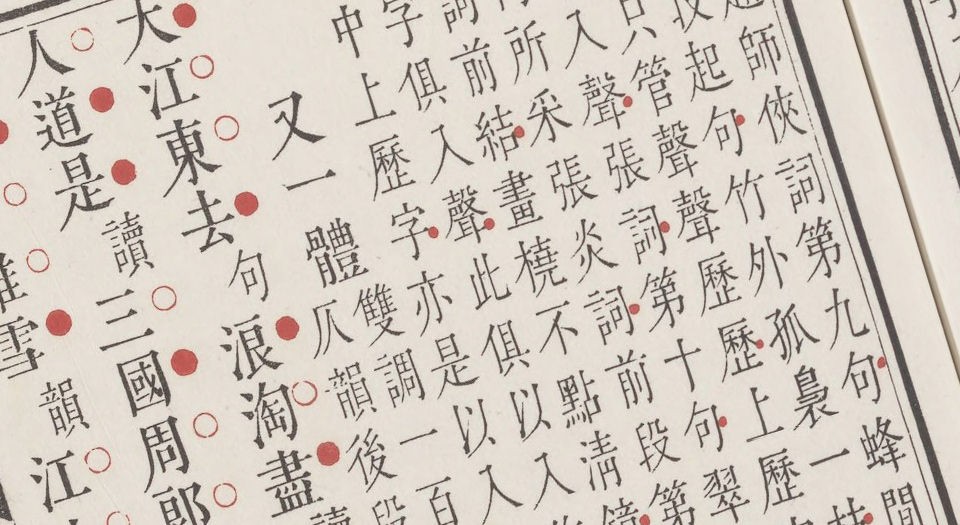 師俠詞第九句蜂間
段起句竹外孤裊一枝
只管聲聲歷歷上歷
入聲張詞第十句翠
所采張炎詞前段第
詞前結畫橈不點清鏡
字俱入聲此俱以入
中上歷字亦是以入
又一體雙調一百
仄韻後段
大江東去句浪淘盡讀
人道是讀三國周郎
雪韻江